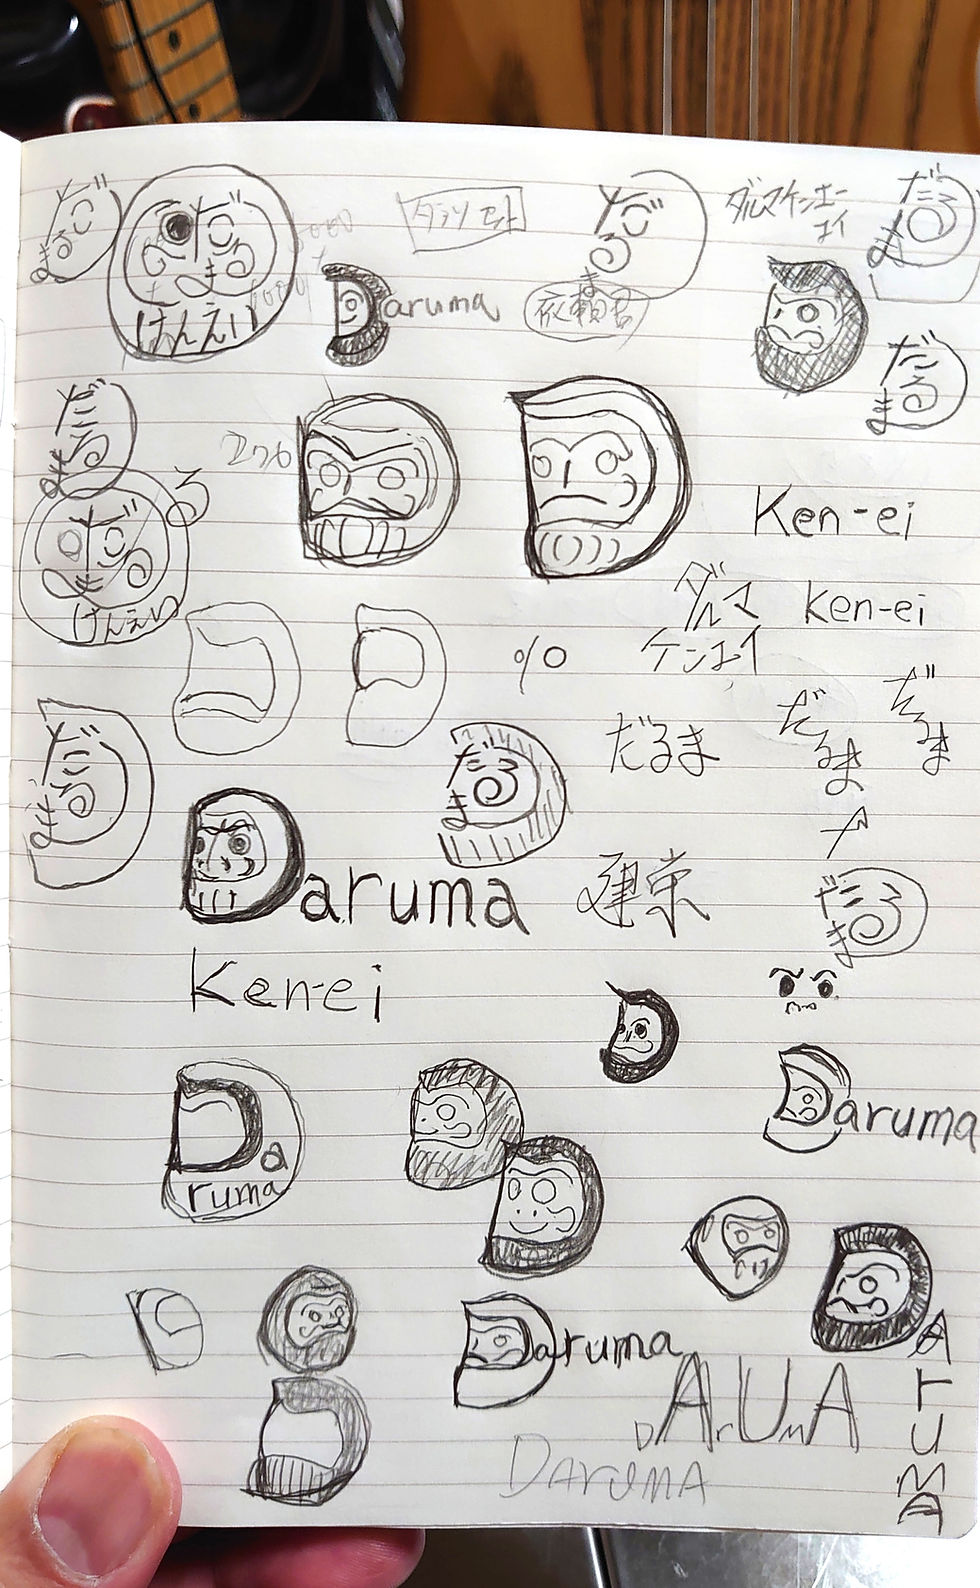 だるま
だるま
けんえい
Daruma
だるま
依頼君
ダルマケンエー
エイ
だるま
だるま
だるま
Ken-ei
だるま
る
けんえい
ダルマ
ケンエイ
Ken-ei
%
だるま
だるま
だるま
だるま
だるま
Daruma
建栄
だるま
Ken-ei
Daruma
Daruma
Daruma
DARUMA
DArUMA
DARUMA